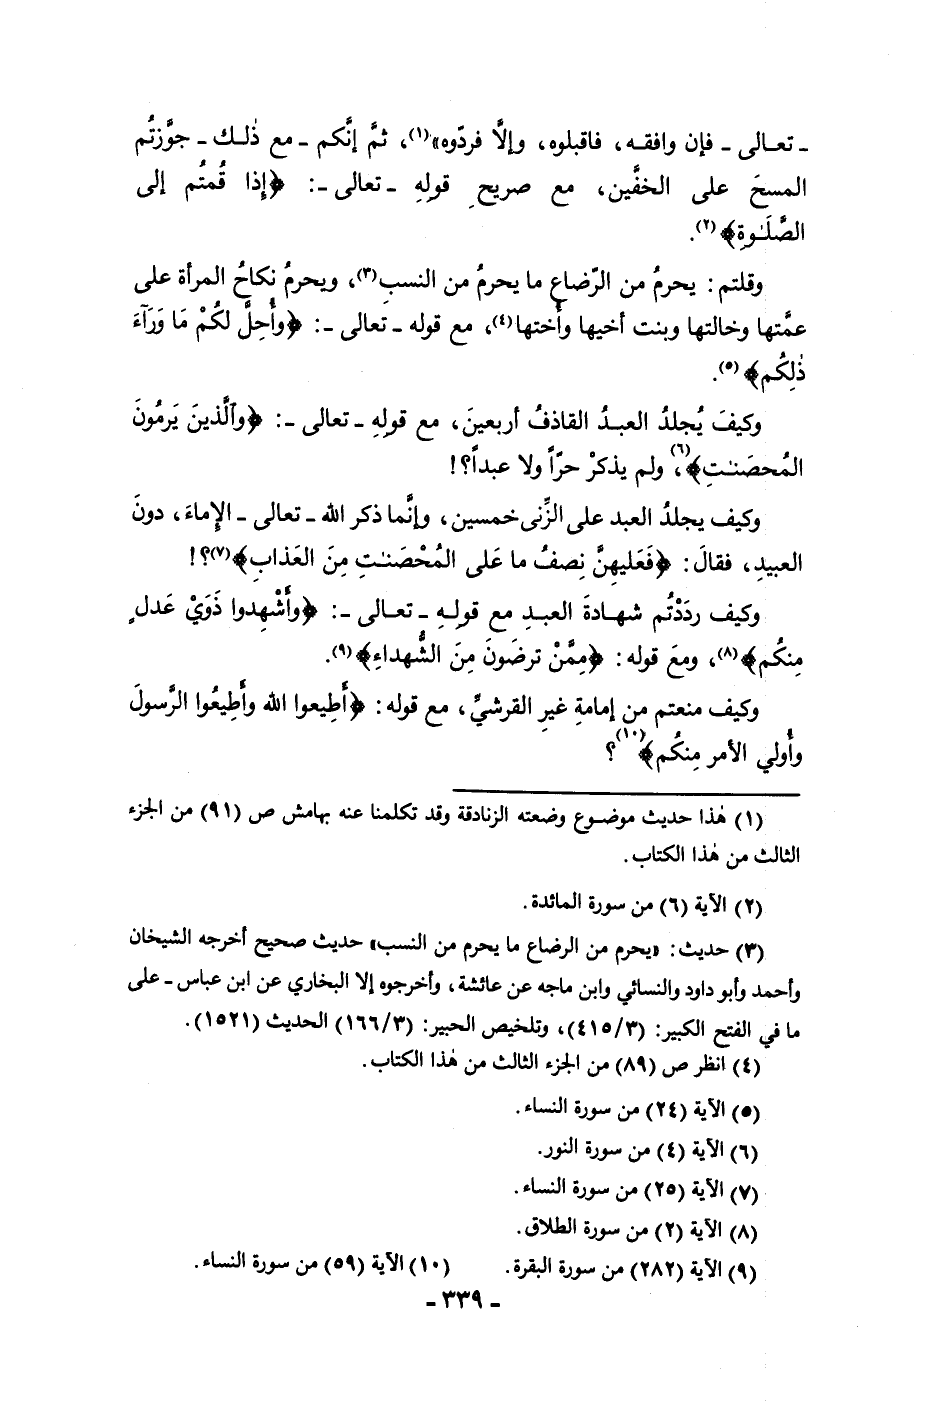 ـ تعـالى ـ فإن وافقـه، فاقبلوه، وإلَّا فردّوه»(١)، ثمَّ إنَّكم ـ مع ذٰلـك ـ جوَّزتُم
المسحَ على الخفَّين، مع صريحِ قولِهِ ـ تعالى ـ: ﴿إذا قُمتُم إلى
الصَّلَـٰوةِ﴾(٢).
وقلتم: يحرمُ من الرّضاعِ ما يحرمُ من النسبِ(٣)، ويحرمُ نكاحُ المرأة على
عمَّتها وخالتها وبنت أخيها وأُختها(٤)، مع قوله ـ تعالى ـ: ﴿وأُحِلَّ لكُمْ مَا وَرَآءَ
ذٰلِكُم﴾(٥).
وكيفَ يُجلدُ العبـدُ القاذفُ أربعينَ، مع قولِهِ ـ تعالى ـ: ﴿وٱلَّذينَ يَرمُونَ
المُحصَنـٰتِ﴾(٦)، ولم يذكرْ حرّاً ولا عبداً؟!
وكيف يجلدُ العبد على الزِّنى خمسين، وإنَّما ذكر الله ـ تعالى ـ الإماءَ، دونَ
العبيدِ، فقالَ: ﴿فَعَليهِنَّ نِصفُ ما عَلى المُحْصَنـٰتِ مِنَ العَذابِ﴾(٧)؟!
وكيف ردَدْتُم شهـادةَ العبـدِ مع قولِـهِ ـ تعـالى ـ: ﴿وأَشْهِدوا ذَوَيْ عَدلٍ
مِنكُم﴾(٨)، ومعَ قوله: ﴿مِمَّنْ ترضَونَ مِنَ الشُّهداءِ﴾(٩).
وكيف منعتم من إمامةِ غيرِ القرشيِّ، مع قوله: ﴿أَطِيعوا الله وأَطِيعُوا الرَّسولَ
وأُولي الأمر مِنكُم﴾(١٠)؟
(١) هٰذا حديث موضـوع وضعته الزنادقة وقد تكلمنا عنه بهامش ص (٩١) من الجزء
الثالث من هٰذا الكتاب.
(٢) الآية (٦) من سورة المائدة.
(٣) حديث: «يحرم من الرضاع ما يحرم من النسب» حديث صحيح أخرجه الشيخان
وأحمد وأبو داود والنسائي وابن ماجه عن عائشة، وأخرجوه إلا البخاري عن ابن عباس ـ على
ما في الفتح الكبير: (٤١٥/٣)، وتلخيص الحبير: (١٦٦/٣) الحديث (١٥٢١).
(٤) انظر ص (٨٩) من الجزء الثالث من هٰذا الكتاب.
(٥) الآية (٢٤) من سورة النساء.
(٦) الآية (٤) من سورة النور.
(٧) الآية (٢٥) من سورة النساء.
(٨) الآية (٢) من سورة الطلاق.
(٩) الآية (٢٨٢) من سورة البقرة. (١٠) الآية (٥٩) من سورة النساء.
ـ ٣٣٩ ـ